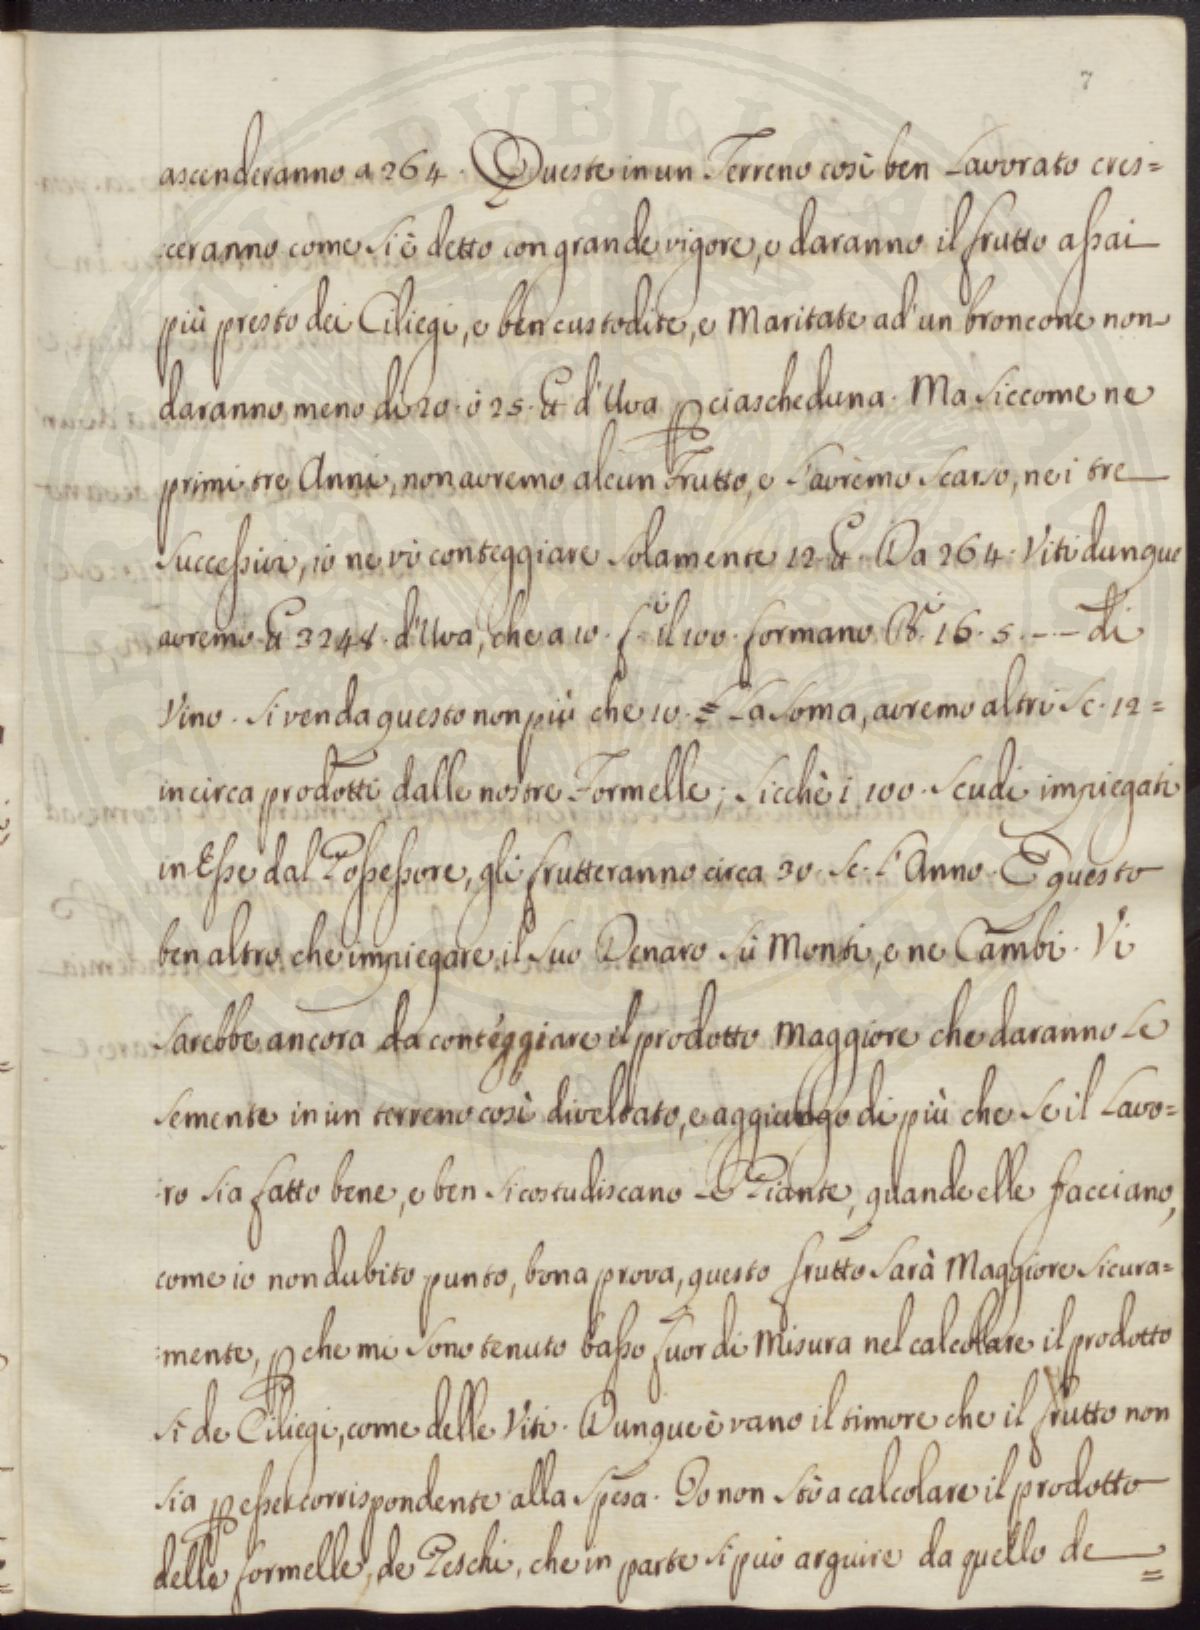 7
ascenderanno a 264. Queste in un Terreno così ben Lavorato cres=
ceranno come si è detto con grande vigore, e daranno il frutto assai
più presto dei Ciliegi, e ben custodite, e Maritate ad' un broncone non
daranno meno di 20. ò 25. ℔ d'Uva p ciascheduna. Ma siccome ne
primi tre Anni, non avremo alcun Frutto, e l'avremo scarso, nei tre
successivi, io ne vò conteggiare solamente 12. ℔. Da 264. Viti dunque
avremo ℔ 3248. d'Uva, che a 10. il 100. formano 16. 5. -- di
Vino. Si venda questo non più che 10. La Soma, avremo altri Sc. 12=
incirca prodotti dalle nostre Formelle; sicchè i 100. Scudi impiegati
in Esse dal Possessore, gli frutteranno circa 30. Sc. l'Anno. E questo
ben altro che impiegare il suo Denaro sù Monti, e ne Cambi. Vi
sarebbe ancora da conteggiare il prodotto Maggiore che daranno Le
semente in un terreno così diveltato, e aggiungo di più che se il Lavo=
ro sia fatto bene, e ben si costudiscano Le Piante, quand'elle facciano,
come io non dubito punto, bona prova, questo frutto sarà Maggiore sicura=
mente, pche mi sono tenuto basso fuor di Misura nel calcolare il prodotto
sì de Ciliegi, come delle Viti. Dunque è vano il timore che il frutto non
sia p esser corrispondente alla Spesa. Io non stò a calcolare il prodotto
delle formelle, de Peschi, che in parte si può arguire da quello de =
PUBLICA